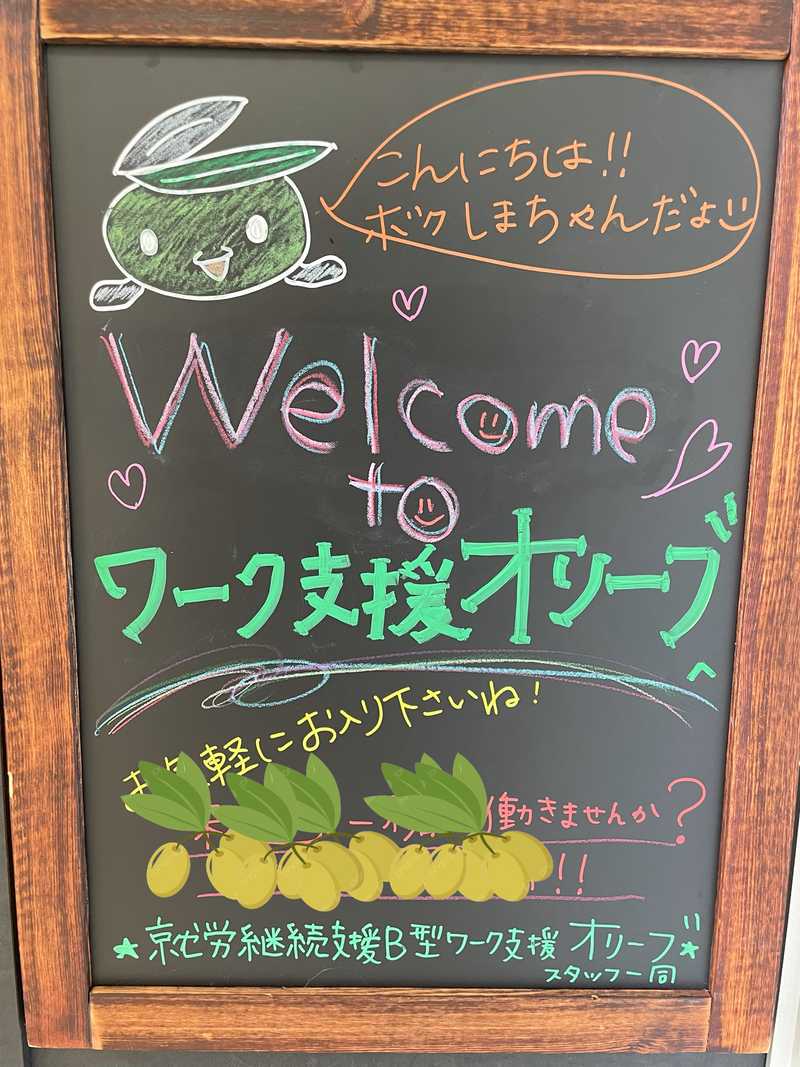 こんにちは!!
ボク しまちゃんだよ
Welcome
to
ワーク支援オリーブ
へ
お気軽にお入り下さいね!
働きませんか?
!!
★就労継続支援B型ワーク支援 オリーブ★
スタッフ一同